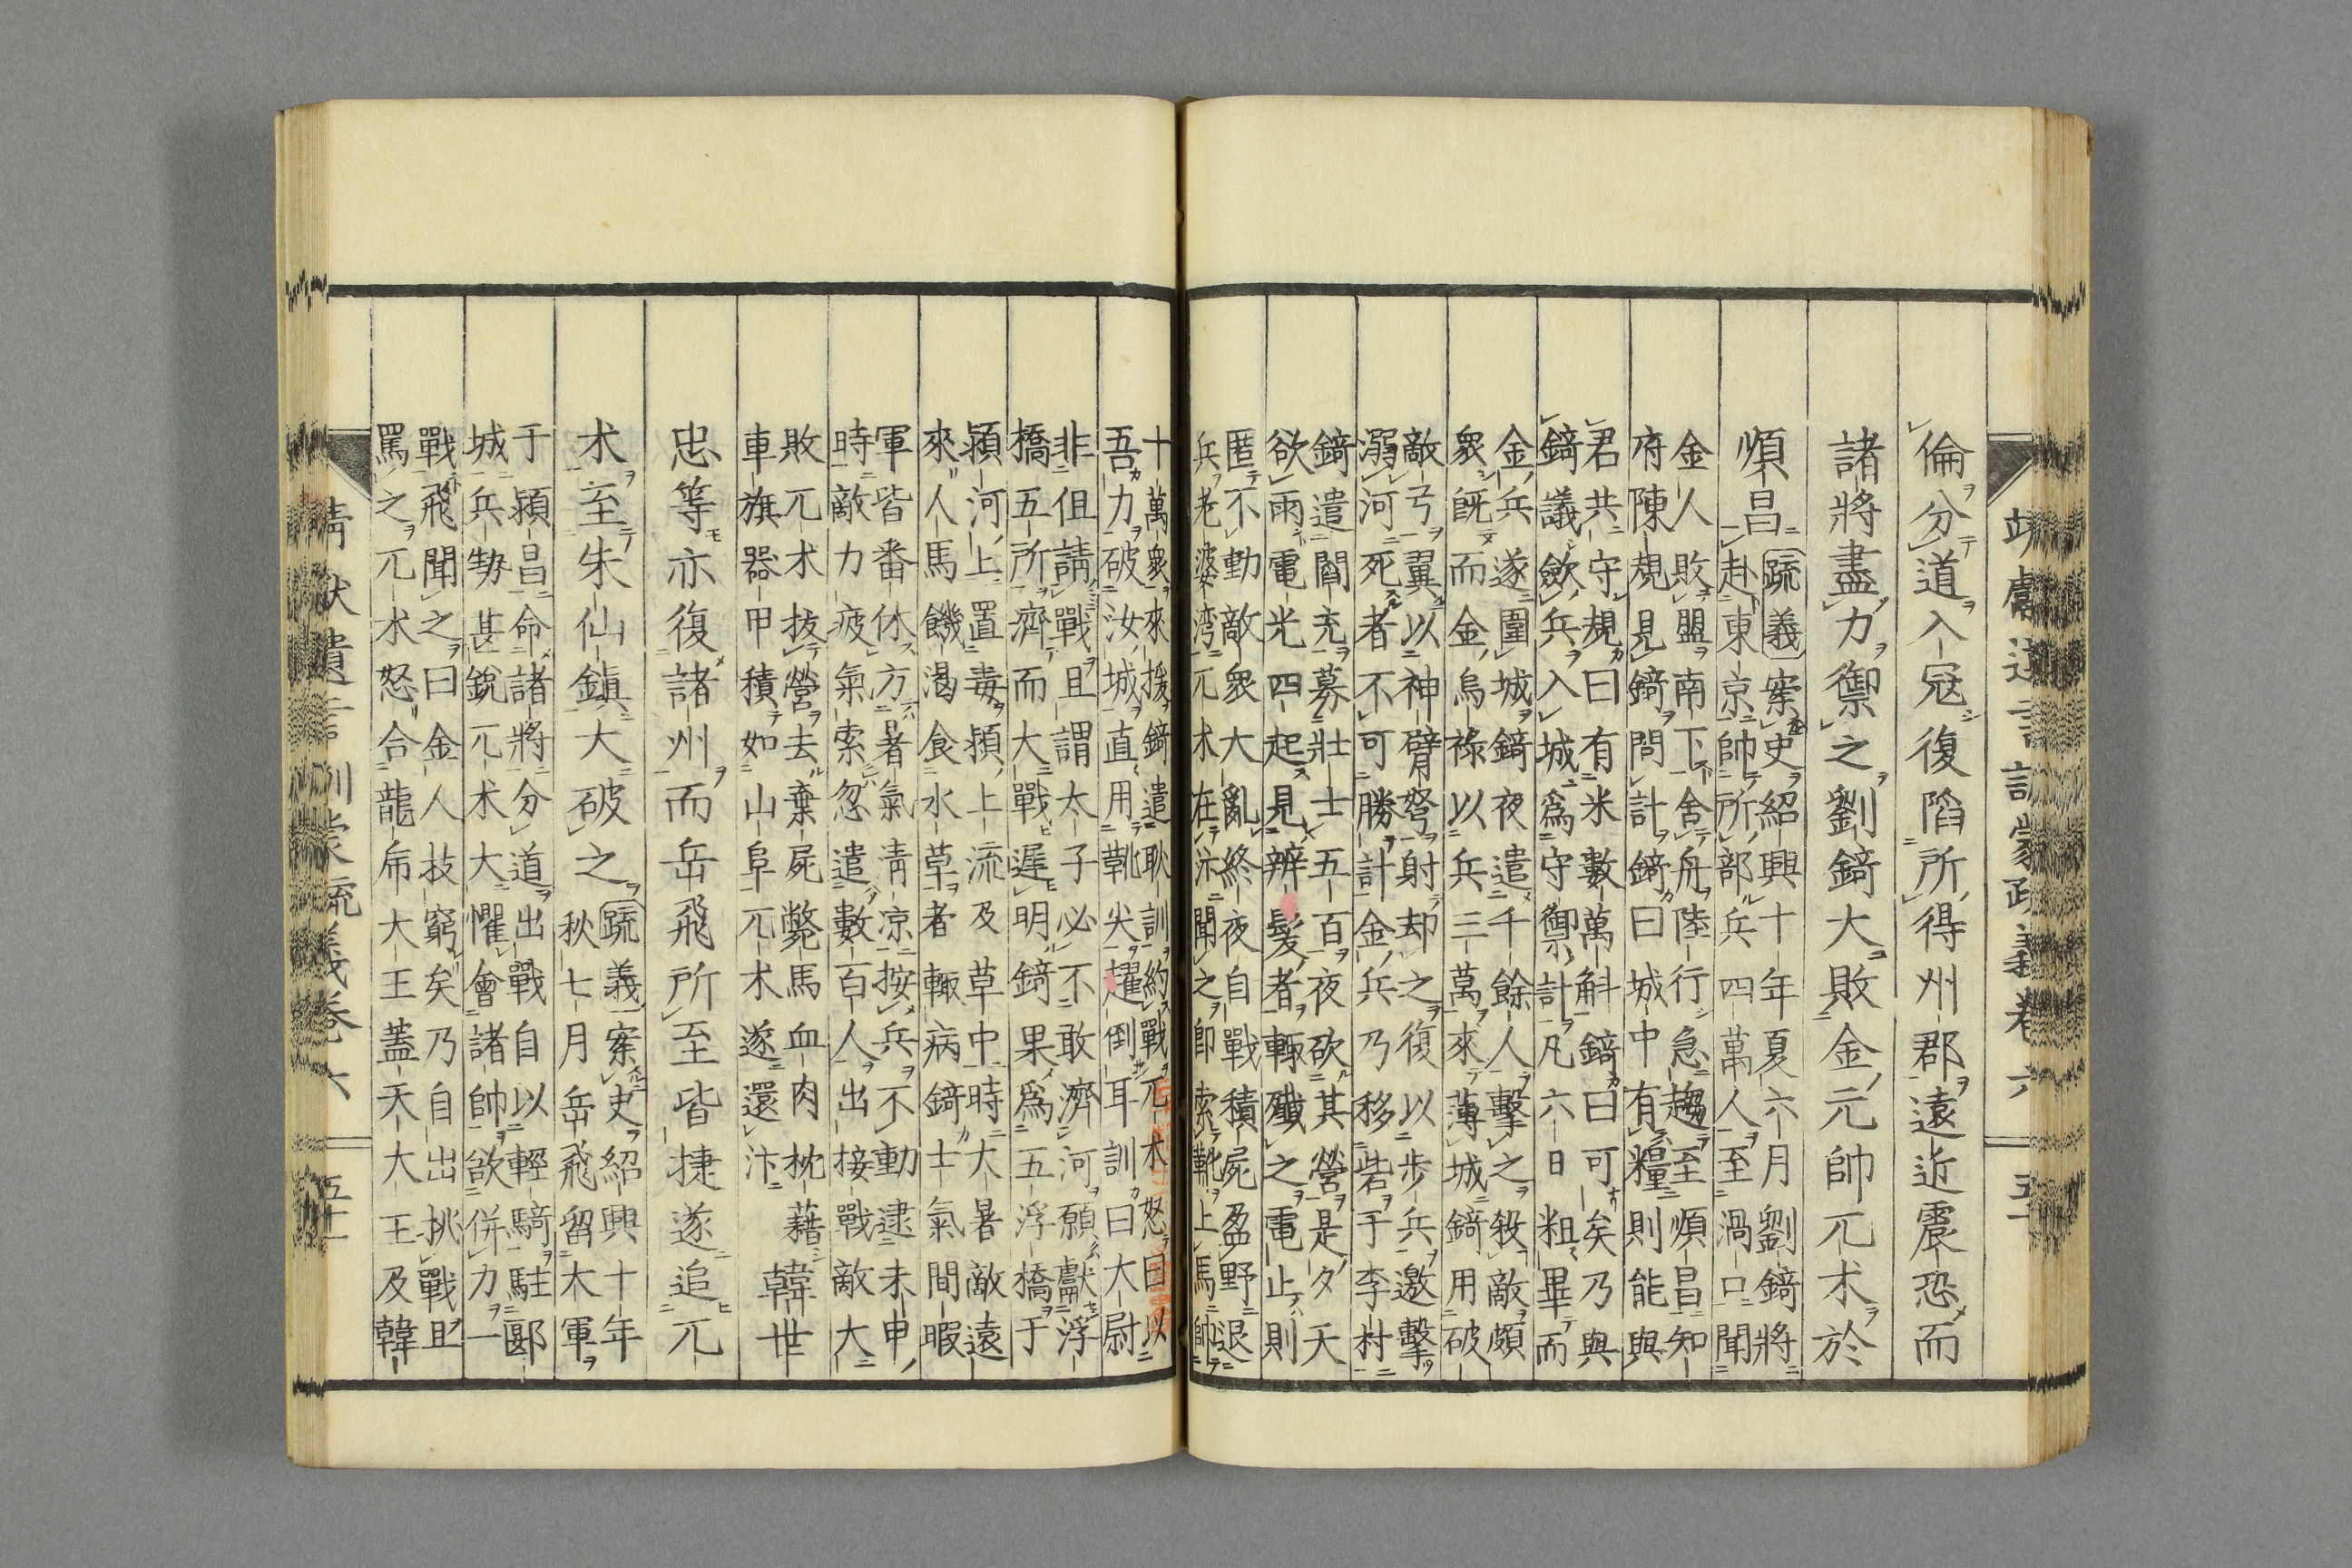 倫分道入冦復陷所得州郡遠近震恐而
諸將盡力禦之劉錡大敗金元帥兀朮於
順昌
疏義案史紹興十年夏六月劉錡將
赴東京帥所部兵四萬人至渦口聞
金人敗盟南下舍舟陸行急趨至順昌知
府陳規見錡問計錡曰城中有糧則能與
君共守規曰有米數萬斛錡曰可矣乃與
錡議斂兵入城爲守禦計凡六日粗畢而
金兵遂圍城錡夜遣千餘人擊之殺敵頗
衆既而金烏祿以兵三萬來薄城錡用破
敵弓翼以神臂弩射却之復以步兵邀擊
溺河死者不可勝計金兵乃移砦于李村
錡遣閻充募壯士五百夜砍其營是夕天
欲雨電光四起見辨髮者輒殱之電止則
匿不動敵衆大亂終夜自戰積屍盈野退
兵老婆湾兀朮在汴聞之即索靴上馬帥
十萬衆來援錡遣耿訓約戰兀朮怒曰以
吾力破汝城直用靴尖趯倒耳訓曰大尉
非但請戰且謂太子必不敢濟河願獻浮
橋五所濟而大戰遲明錡果爲五浮橋于
潁河上置毒潁上流及草中時大暑敵遠
來人馬饑渇食水草者輒病錡士氣間暇
軍皆番休方暑氣清凉按兵不動逮未申
時敵力疲氣索忽遣數百人出接戰敵大
敗兀朮拔營去棄屍斃馬血肉枕藉
車旗器甲積如山阜兀朮遂還汴
韓世
忠等亦復諸州而岳飛所至皆捷遂追兀
朮至朱仙鎮大破之
疏義案史紹興十年
秋七月岳飛留大軍
于潁昌命諸將分道出戰自以輕騎駐郾
城兵勢甚銳兀朮大懼會諸帥欲併力一
戰飛聞之曰金人技窮矣乃自出挑戰且
罵之兀朮怒合龍虎大王蓋天大王及韓